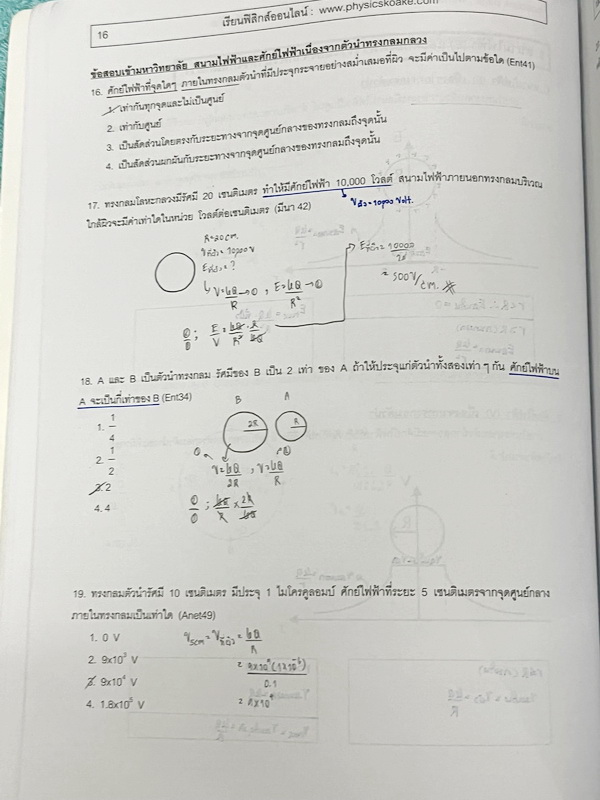 16
เรียนฟิสิกส์ออนไลน์ : www.physicskoake.com
ข้อสอบเข้ามหาวิทยาลัย สนามไฟฟ้าและศักย์ไฟฟ้าเนื่องจากตัวนำทรงกลมกลวง
16. ศักย์ไฟฟ้าที่จุดใดๆ ภายในทรงกลมตัวนำที่มีประจุกระจายอย่างสม่ำเสมอที่ผิว จะมีค่าเป็นไปตามข้อใด (Ent41)
1. เท่ากันทุกจุดและไม่เป็นศูนย์
2. เท่ากับศูนย์
3. เป็นสัดส่วนโดยตรงกับระยะทางจากจุดศูนย์กลางของทรงกลมถึงจุดนั้น
4. เป็นสัดส่วนผกผันกับระยะทางจากจุดศูนย์กลางของทรงกลมถึงจุดนั้น
17. ทรงกลมโลหะกลวงมีรัศมี 20 เซนติเมตร ทำให้มีศักย์ไฟฟ้า 10,000 โวลต์ สนามไฟฟ้าภายนอกทรงกลมบริเวณ
ใกล้ผิวจะมีค่าเท่าใดในหน่วย โวลต์ต่อเซนติเมตร (มีนา 42)
Vผิว = 10,000 Volt.
R = 20 cm.
Vผิว = 10,000 V
Eผิว = ?
V = kQ/R → ① , E = kQ/R² → ②
②/① ; E/V = kQ/R² · R/kQ
Eผิว = 10000/20
= 500 V/cm.
18. A และ B เป็นตัวนำทรงกลม รัศมีของ B เป็น 2 เท่า ของ A ถ้าให้ประจุแก่ตัวนำทั้งสองเท่า ๆ กัน ศักย์ไฟฟ้าบน
A จะเป็นกี่เท่าของ B (Ent34)
1. 1/4
2. 1/2
3. 2
4. 4
B A
2R R
V = kQ/2R , V = kQ/R
; kQ/R × 2R/kQ
19. ทรงกลมตัวนำรัศมี 10 เซนติเมตร มีประจุ 1 ไมโครคูลอมบ์ ศักย์ไฟฟ้าที่ระยะ 5 เซนติเมตรจากจุดศูนย์กลาง
ภายในทรงกลมเป็นเท่าใด (Anet49)
1. 0 V
2. 9x10³ V
3. 9x10⁴ V
4. 1.8x10⁵ V
V5cm = Vที่ผิว = kQ/R
= 9×10⁹(1×10⁻⁶)/0.1
= 9×10⁴